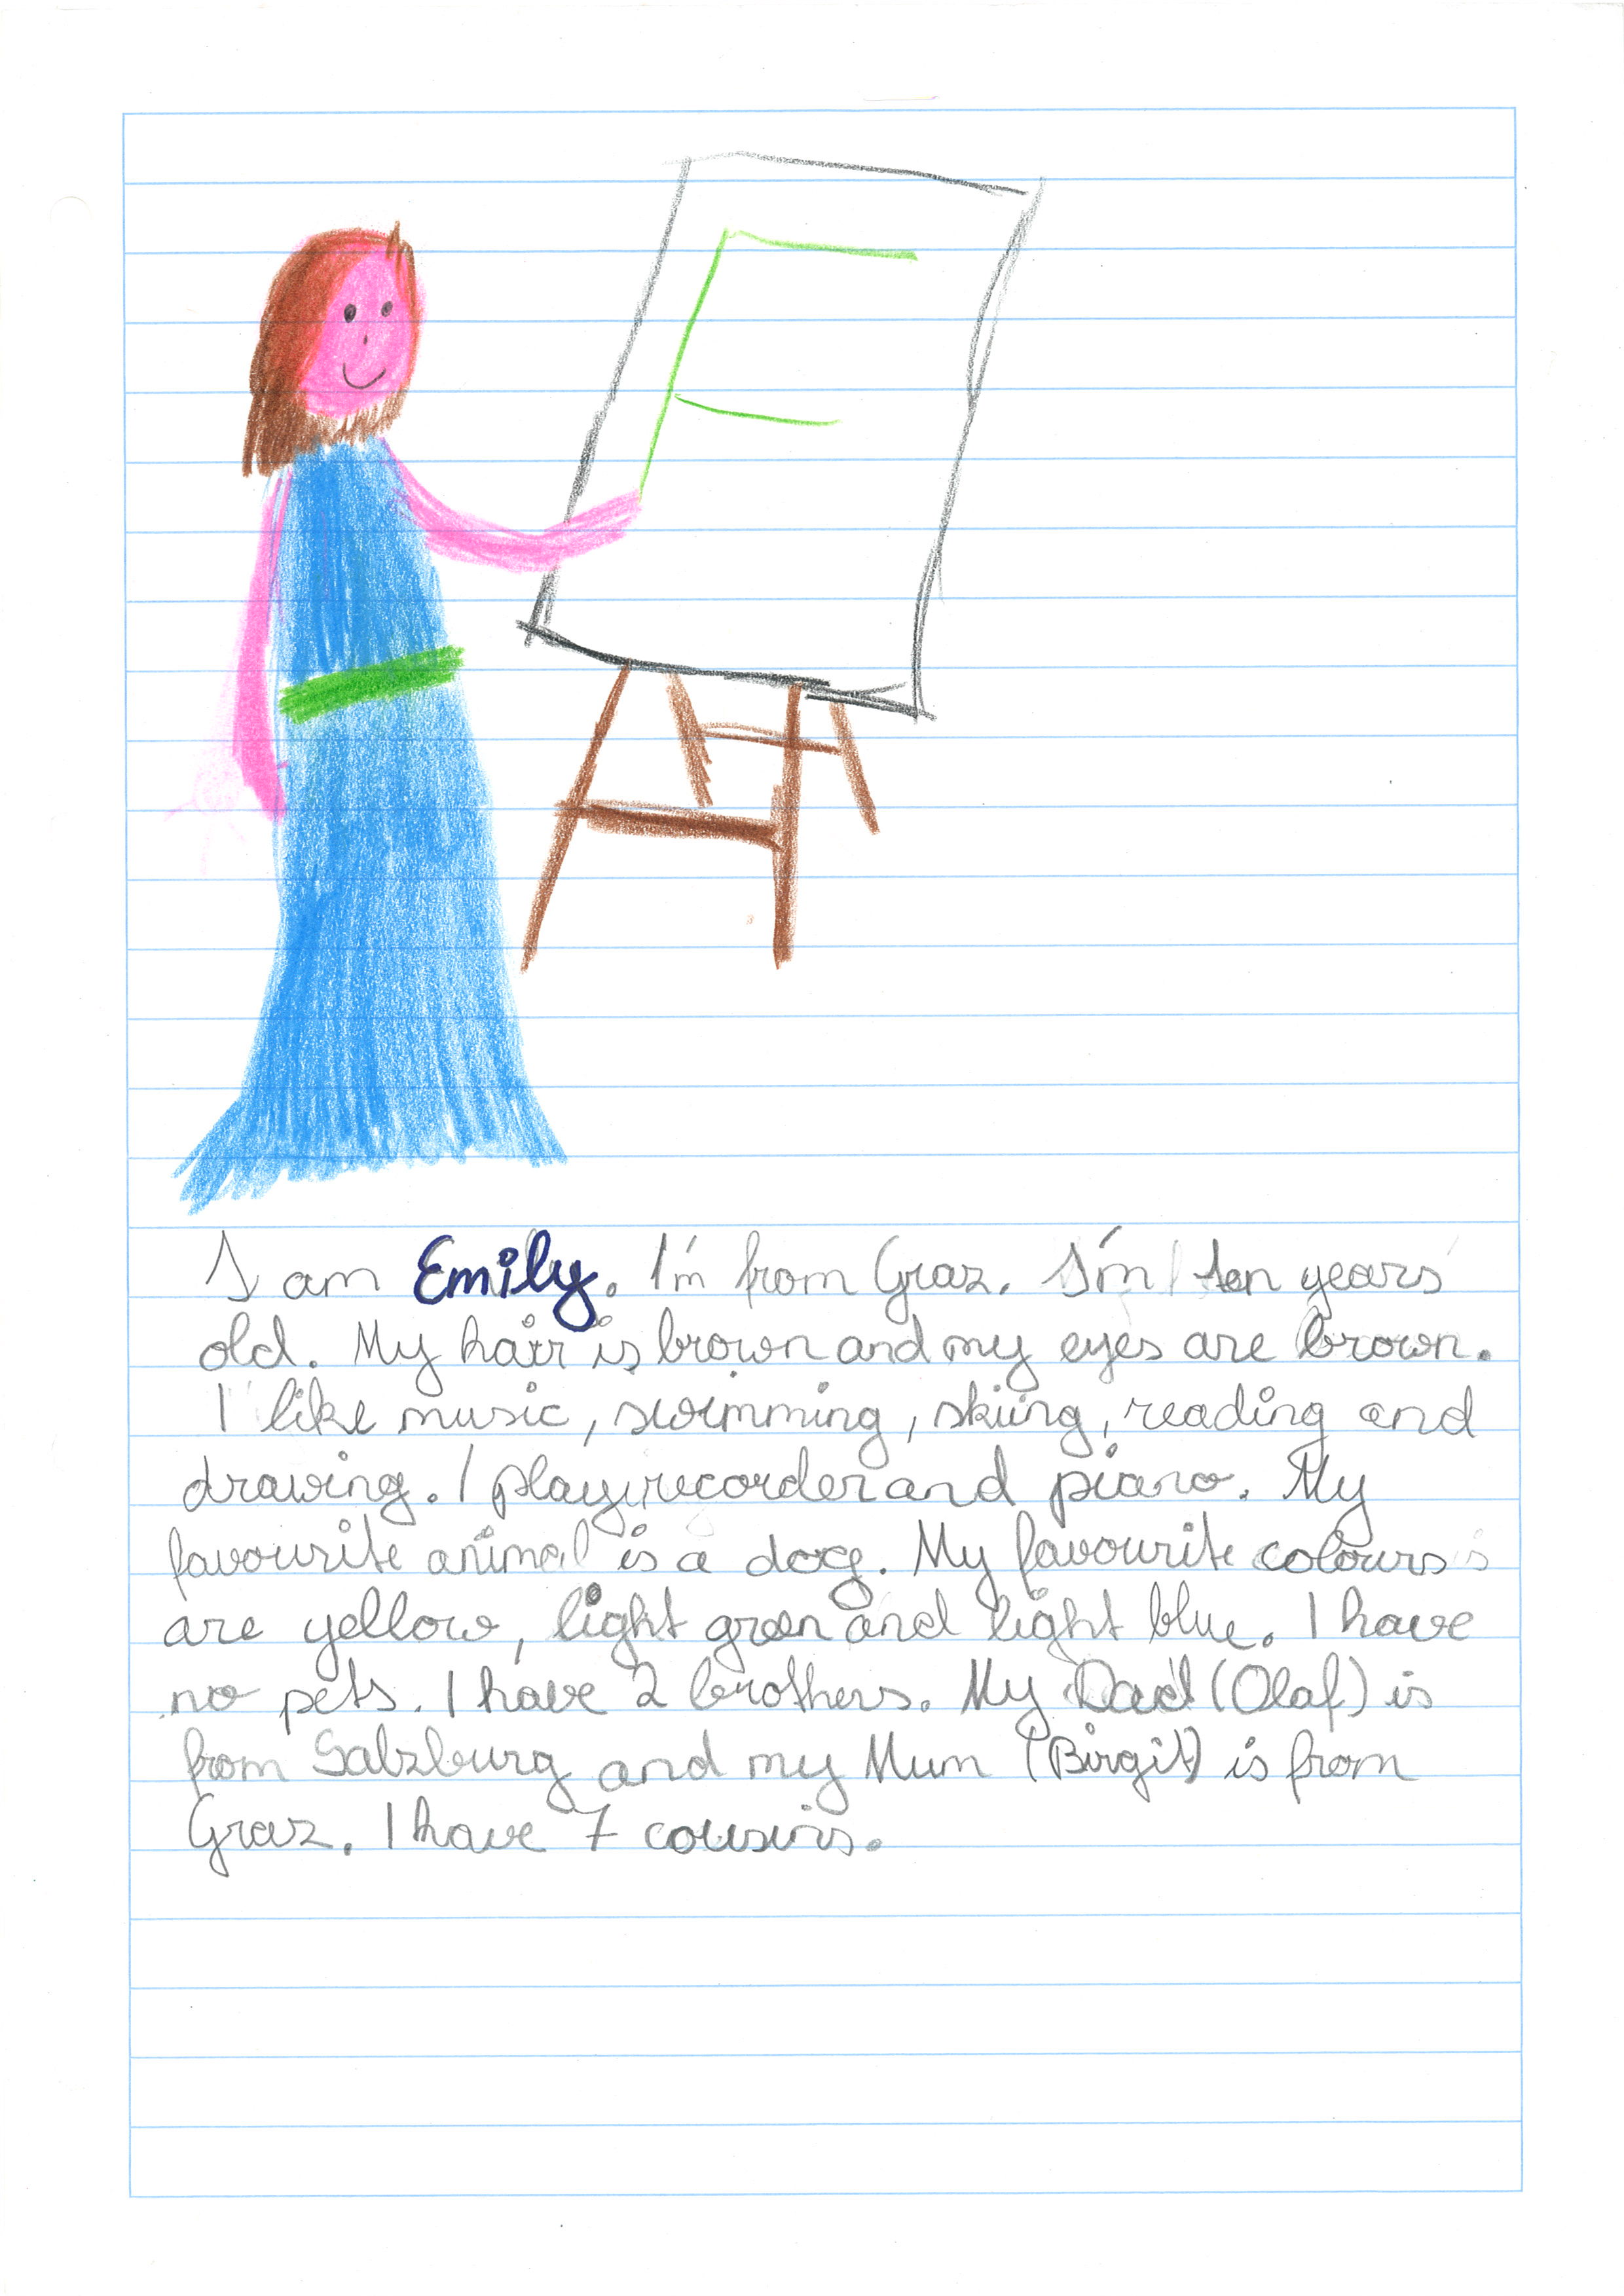 F
I am Emily. I'm from Graz. I'm ten years
old. My hair is brown and my eyes are brown.
I like music, swimming, skiing, reading and
drawing. I play recorder and piano. My
favourite animal is a dog. My favourite colours
are yellow, light green and light blue. I have
no pets. I have 2 brothers. My Dad (Olaf) is
from Salzburg and my Mum (Birgit) is from
Graz. I have 7 cousins.